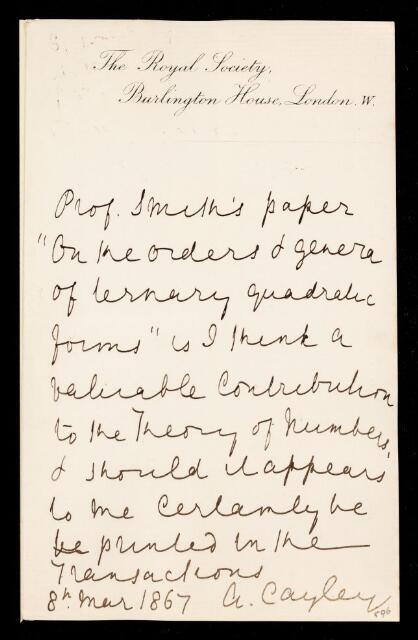 The Royal Society,
Burlington House, London. W.
Prof. Smith's paper
"On the orders & genera
of ternary quadratic
forms" is I think a
valuable contribution
to the Theory of Numbers,
& should it appears
to me certainly be
be printed in the
Transactions
8th Mar 1867 A. Cayley